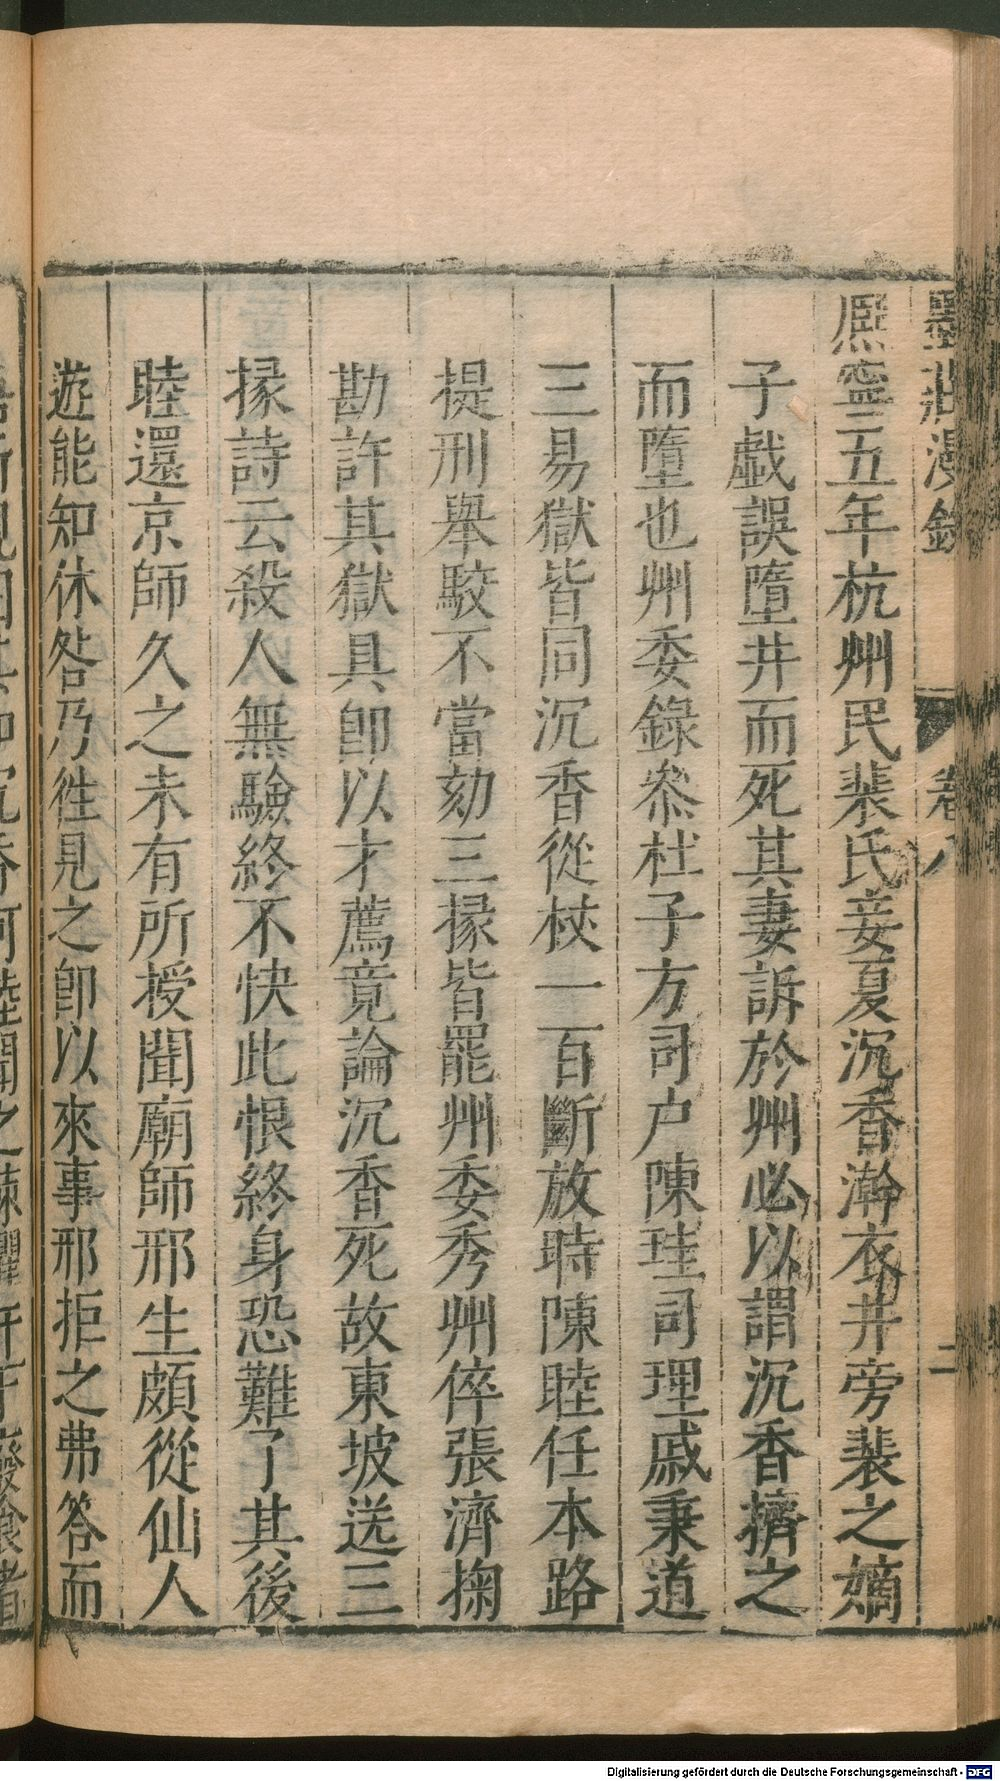 墨莊漫錄 卷八 二
熙寧五年杭州民裴氏妾夏沉香澣衣井旁裴之嫡
子戱誤墮井而死其妻訴於州必以謂沉香擠之
而墮也州委錄叅杜子方司户陳珪司理戚秉道
三易獄皆同沉香從杖一百斷放時陳睦任本路
提刑舉駮不當劾三掾皆罷州委秀州倅張濟掬
勘許其獄具卽以才薦竟論沉香死故東坡送三
掾詩云殺人無驗終不快此恨終身恐難了其後
睦還京師久之未有所授聞廟師邢生頗從仙人
遊能知休咎乃徃見之卽以來事邢拒之弗答而
Digitalisierung gefördert durch die Deutsche Forschungsgemeinschaft - DFG